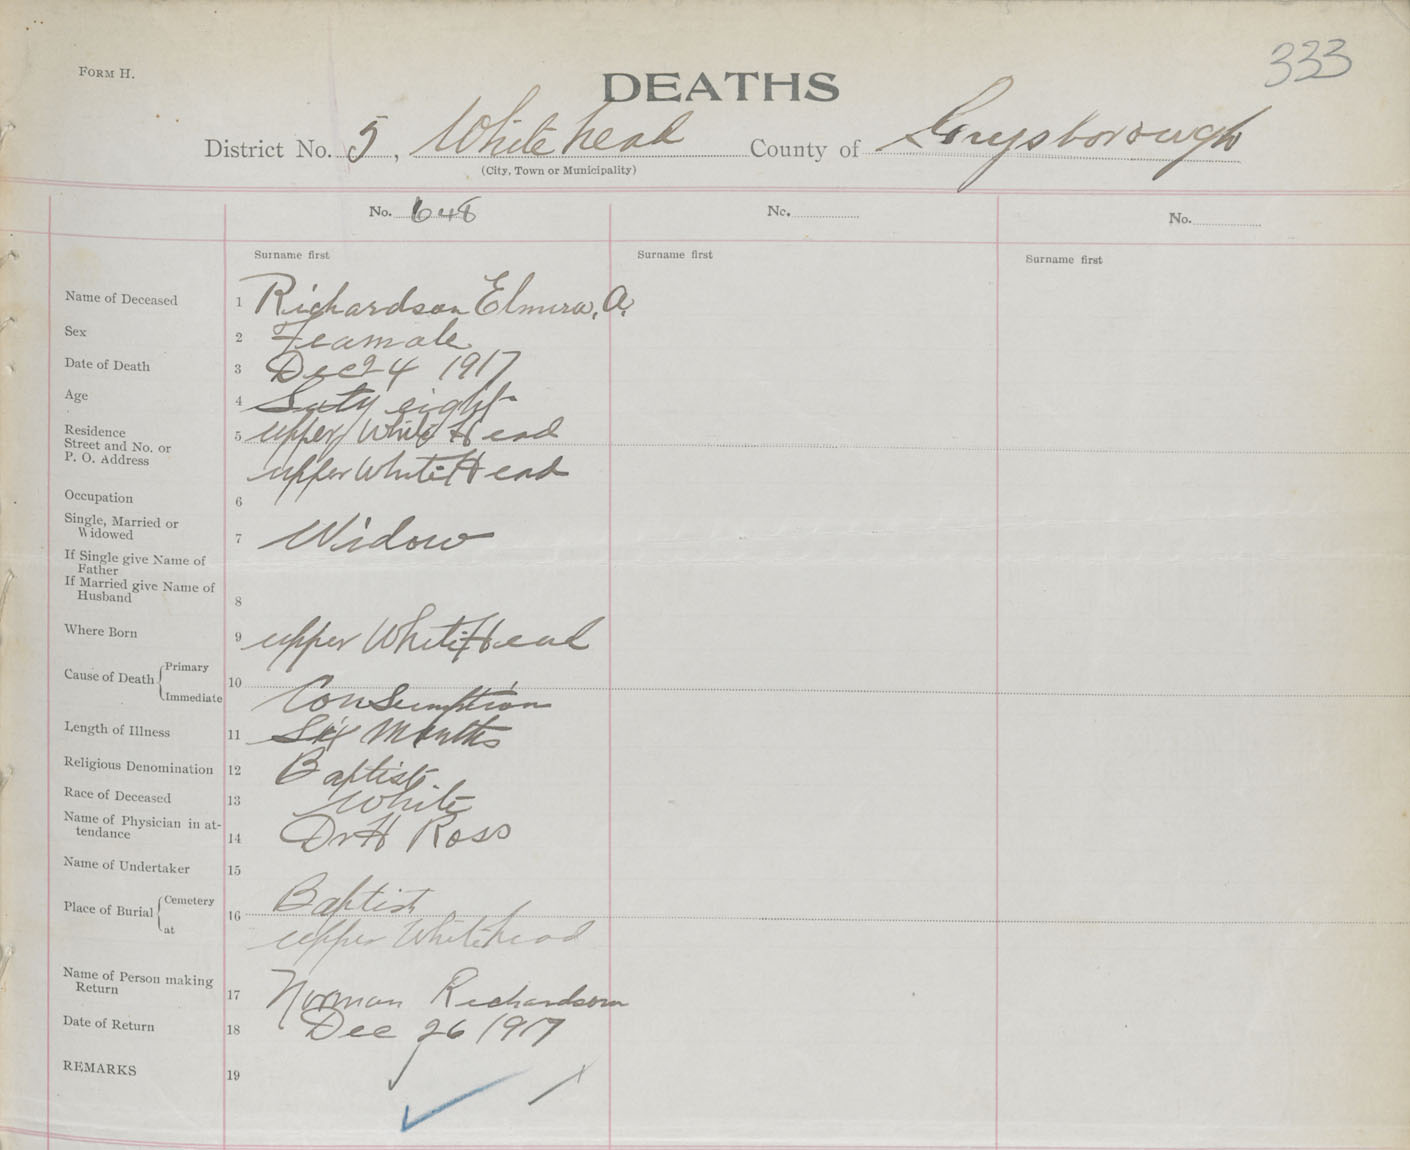 333
FORM H.
DEATHS
District No. 5, White head County of Guysborough
(City, Town or Municipality)
No. 648 No. No.
Surname first Surname first Surname first
Name of Deceased 1 Richardson Elmira, A.
Sex 2 Feamale
Date of Death 3 Dec 24 1917
Age 4 Sixty eight
Residence
Street and No. or
P. O. Address 5 upper White Head
upper White Head
Occupation 6
Single, Married or
Widowed 7 Widow
If Single give Name of
Father
If Married give Name of
Husband 8
Where Born 9 upper White Head
Cause of Death Primary
Immediate 10 Consumption
Length of Illness 11 Six Months
Religious Denomination 12 Baptist
Race of Deceased 13 White
Name of Physician in at-
tendance 14 Dr H Ross
Name of Undertaker 15
Place of Burial Cemetery 16 Baptist
at upper Whitehead
Name of Person making
Return 17 Norman Richardson
Date of Return 18 Dec 26 1917
REMARKS 19